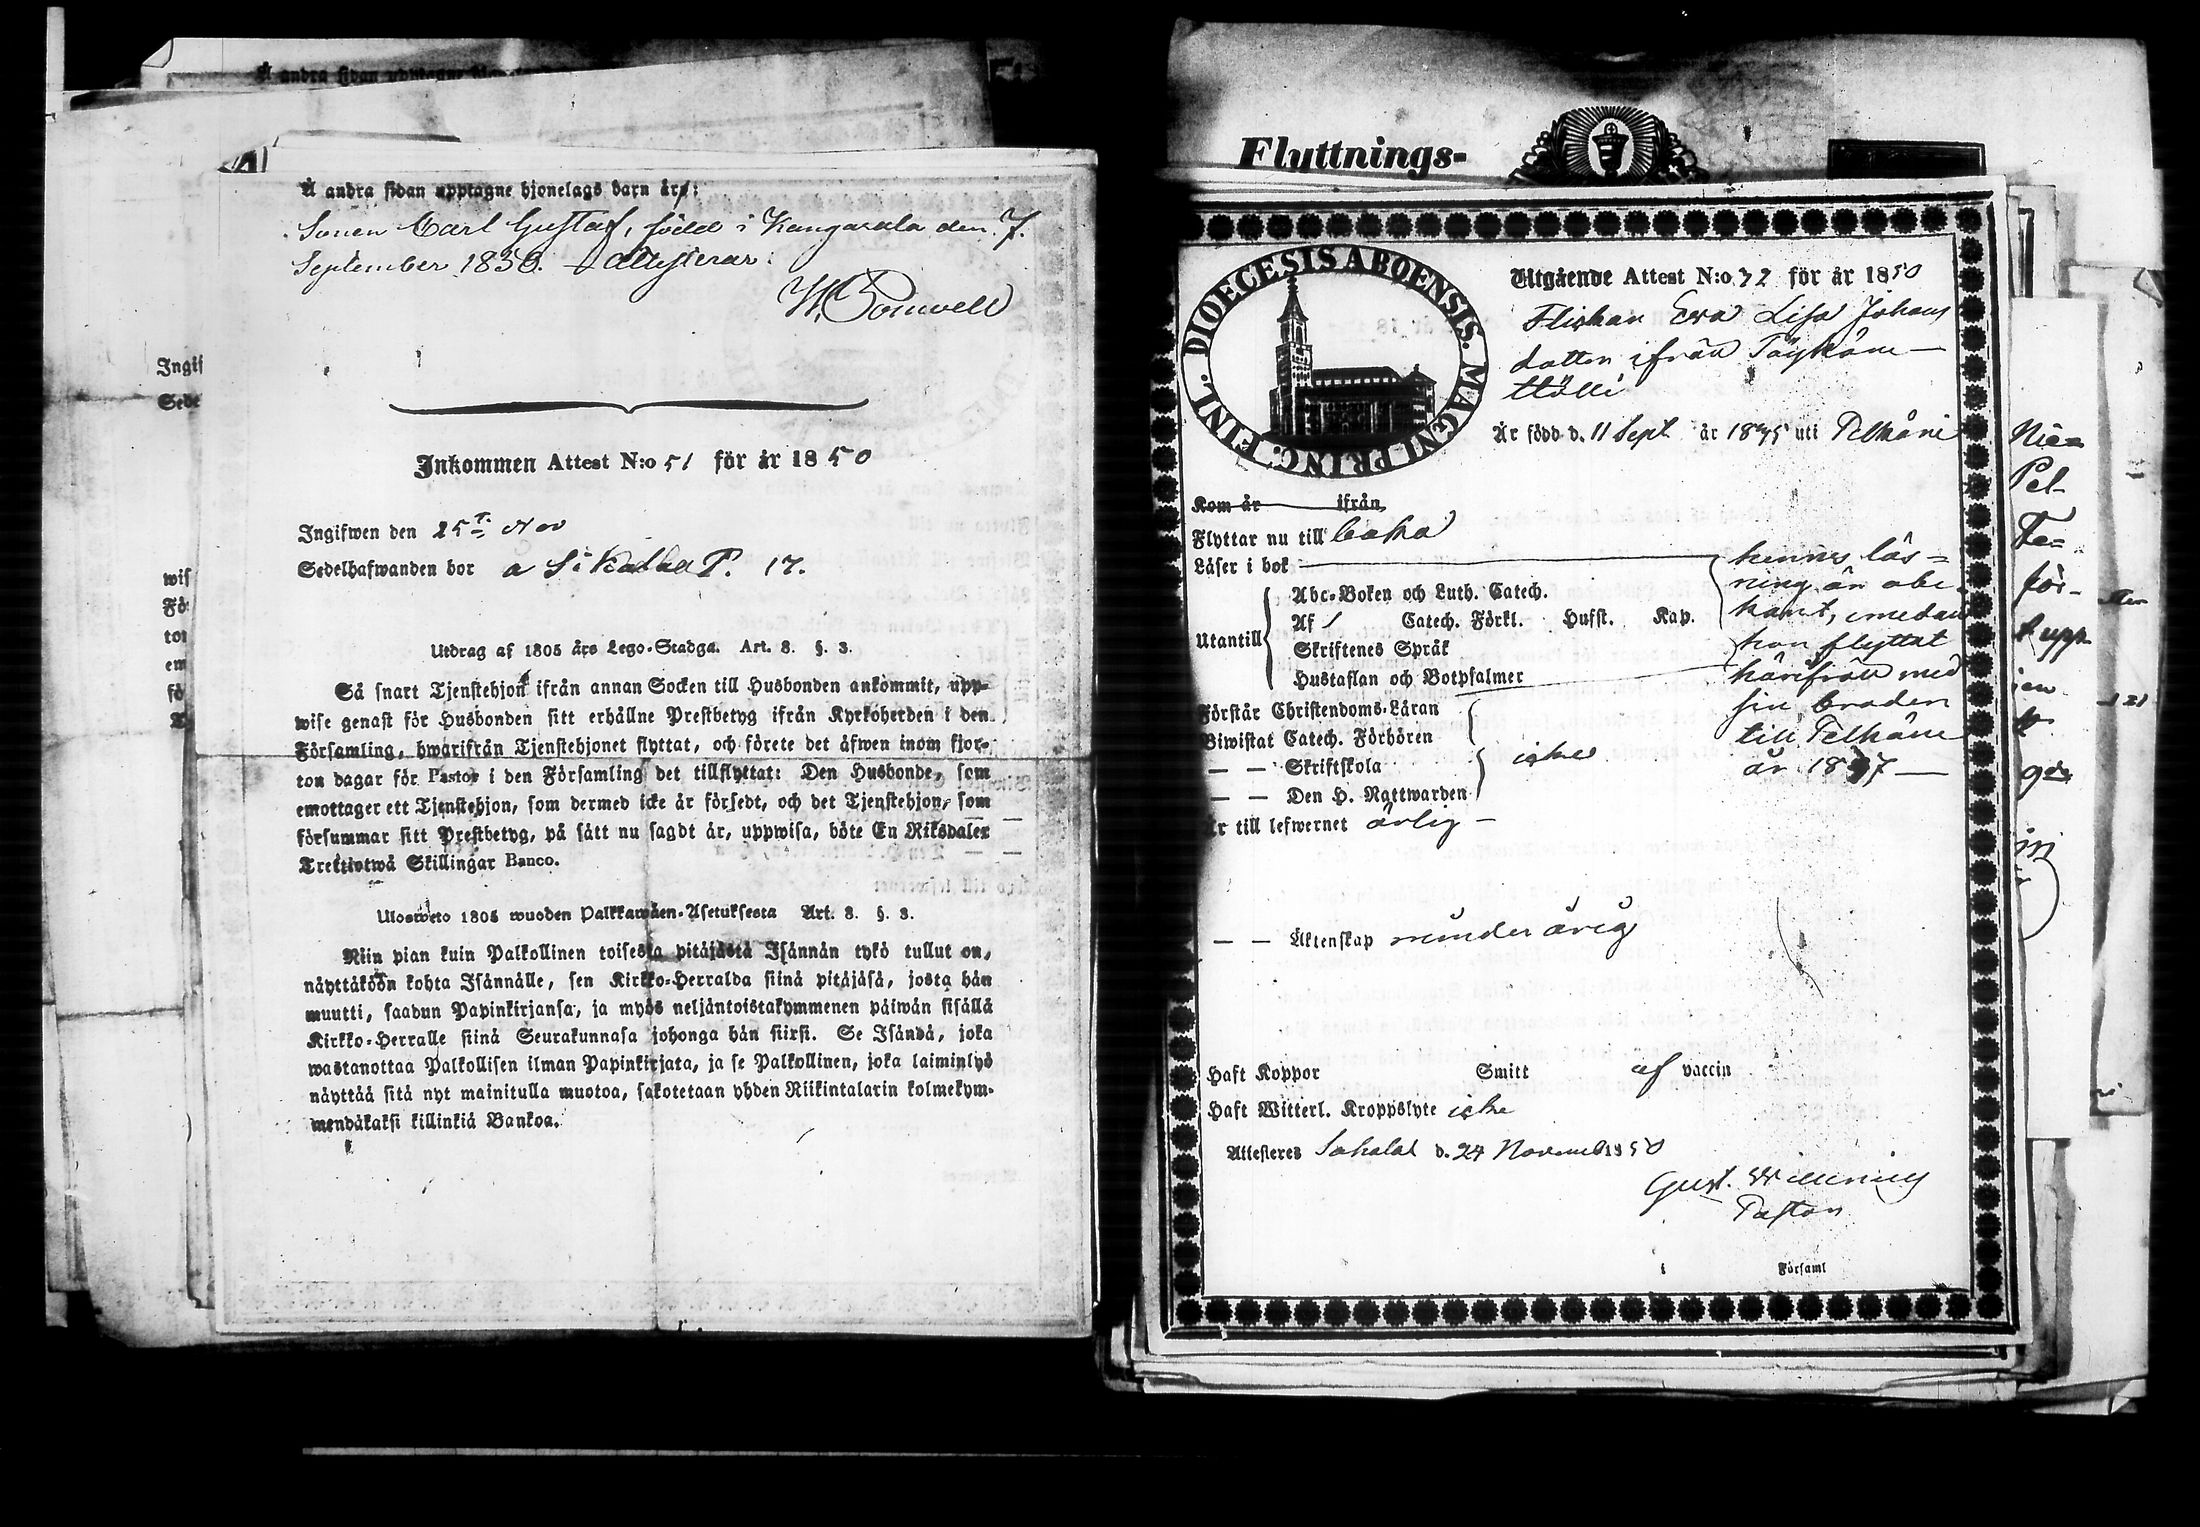 Å andra sidan upptagne hjonelags barn äro:
Sonen Carl Gustaf, född i Kangasala den 7.
September 1836. – Attesterar:
Inkommen Attest N:o 51 för år 1850
Ingifwen den 25 Nov
Sedelhafwanden bor å P. 17.
Utdrag af 1805 års Lego-Stadga. Art. 8. §. 3.
Så snart Tjenstehjon ifrån annan Socken till Husbonden ankommit, upp-
wise genast för Husbonden sitt erhållne Prestbetyg ifrån Kyrkoherden i den
Församling, hwarifrån Tjenstehjonet flyttat, och förete det äfwen inom fjor-
ton dagar för Pastor i den Församling det tillflyttat: Den Husbonde, som
emottager ett Tjenstehjon, som dermed icke är försedt, och det Tjenstehjon, som
försummar sitt Prestbetyg, på sätt nu sagdt är, uppwisa, böte En Riksdaler
Trettiotwå Skillingar Banco.
Ulosweto 1805 wuoden Palkkawäen-Asetuksesta Art. 8. §. 3.
Niin pian kuin Palkollinen toisesta pitäjästä Isännän tykö tullut on,
näyttäköön kohta Isännälle, sen Kirkko-Herralda siinä pitäjäsä, josta hän
muutti, saadun Papinkirjansa, ja myös neljäntoistakymmenen päiwän sisällä
Kirkko-Herralle siinä Seurakunnasa johonga hän siirsi. Se Isändä, joka
wastanottaa Palkollisen ilman Papinkirjata, ja se Palkollinen, joka laiminlyö
näyttää sitä nyt mainitulla muotoa, sakotetaan yhden Riikintalarin kolmekym-
mendäkaksi killinkiä Bankoa.
Flyttnings-
DIOECESIS ABOENSIS. MAGNI PRINC. FINL.
Utgående Attest N:o 32 för år 1850
Flickan Eva Lisa Johans
dotter ifrån
Är född d. 11 Sept. år 1835 uti Pelkäne
Kom år ifrån
Flyttar nu till
Läser i bok
Utantill
Abc-Boken och Luth. Catech.
Af Catech. Förkl. Husst. Kap.
Skriftenes Språk
Hustaflan och Botpsalmer
hennes läs-
ning är obe-
kant, emedan
hon flyttat
härifrån med
sin broder
till Pelkäne
år 1837 —
Förstår Christendoms-Läran
Biwistat Catech. Förhören
— — Skriftskola icke
— — Den H. Nattwarden
Är till lefwernet ärlig —
— — Äktenskap minderårig
Haft Koppor Smitt af vaccin
Haft Witterl. Kroppslyte icke
Attesteres Sahalax d. 24 November 1850
Gust.
Pastor
i Församl